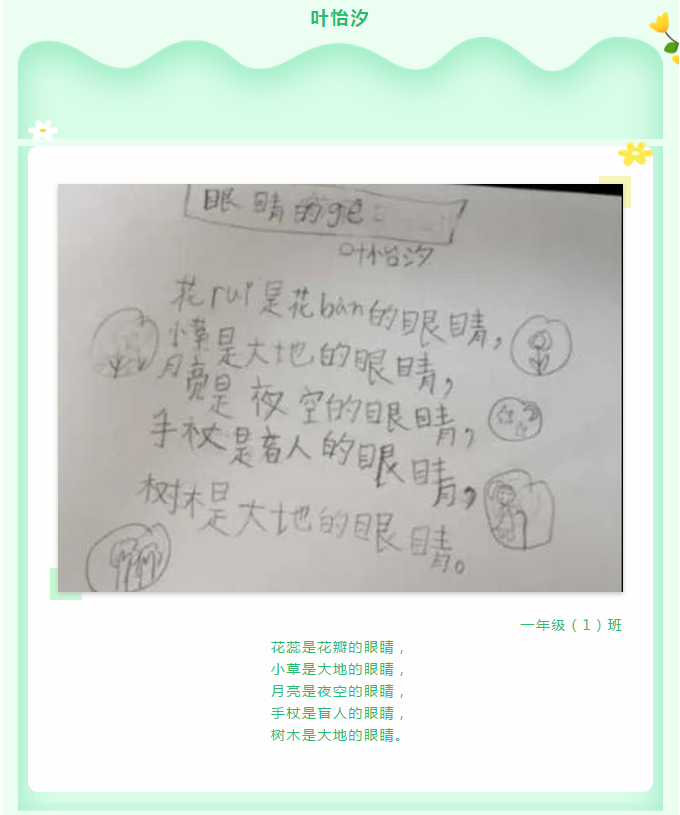 叶怡汐
眼睛的ge
叶怡汐
花rui是花bàn的眼睛,
小草是大地的眼睛,
月亮是夜空的眼睛,
手杖是盲人的眼睛,
树木是大地的眼睛。
一年级（1）班
花蕊是花瓣的眼睛，
小草是大地的眼睛，
月亮是夜空的眼睛，
手杖是盲人的眼睛，
树木是大地的眼睛。